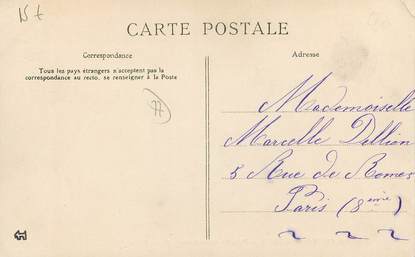 15 €
CARTE POSTALE
Correspondance
Tous les pays étrangers n'acceptent pas la
correspondance au recto, se renseigner à la Poste
Adresse
77
Mademoiselle
Marcelle Dillion
5 Rue de Rome
Paris (8ème)